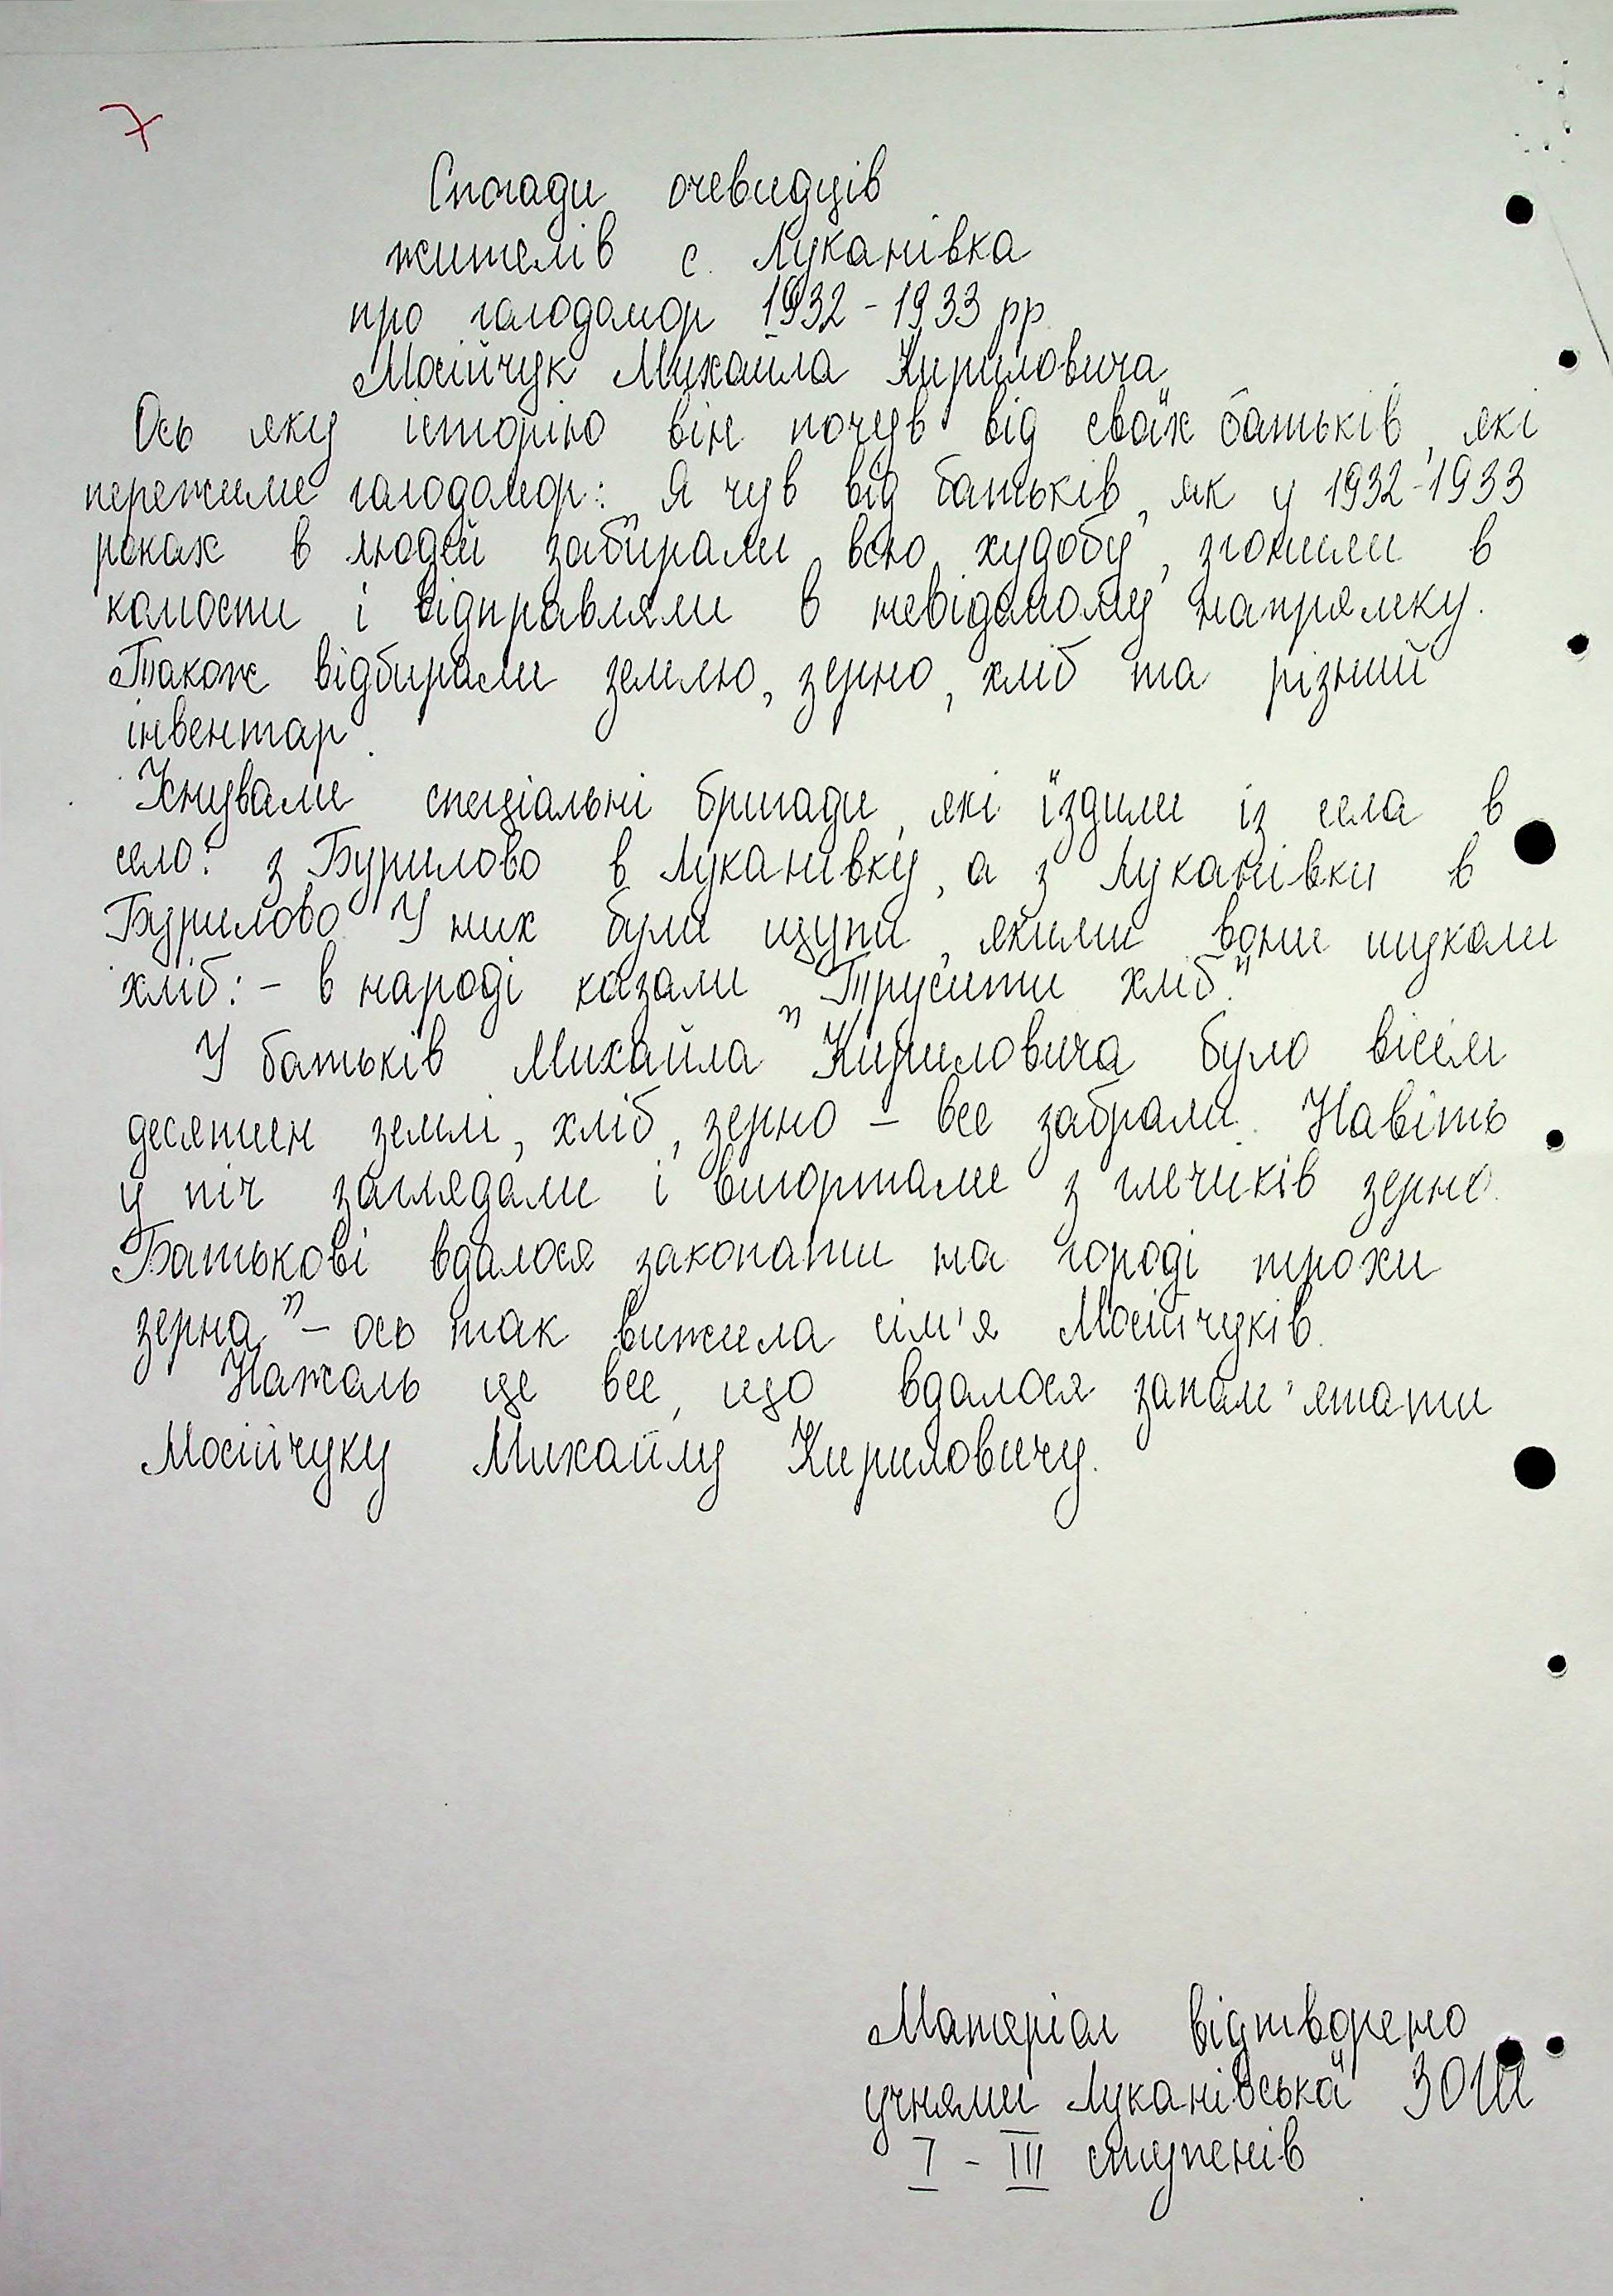 7
Спогади очевидців
жителів с. Луканівка
про голодомор 1932-1933 рр.
Мосійчук Михайла Кириловича
Ось яку історію він почув від своїх батьків, які
пережили голодомор: „Я чув від батьків, як у 1932-1933
роках в людей забирали всю худобу, згонили в
колгоспи і відправляли в невідомому напрямку.
Також відбирали землю, зерно, хліб та різний
інвентар.
Існували спеціальні бригади, які їздили із села в
село: з Бурилово в Луканівку, а з Луканівки в
Бурилово. У них були щупи, якими вони шукали
хліб: - в народі казали „Трусити хліб."
У батьків Михайла Кириловича було вісім
десятин землі, хліб, зерно – все забрали. Навіть
у піч заглядали і вигортали з глечиків зерно.
Батькові вдалося закопати на городі трохи
зерна" – ось так вижила сім'я Мосійчуків.
Нажаль це все, що вдалося запам'ятати
Мосійчуку Михайлу Кириловичу.
Матеріал відтворено
учнями Луканівська ЗОШ
I - III ступенів